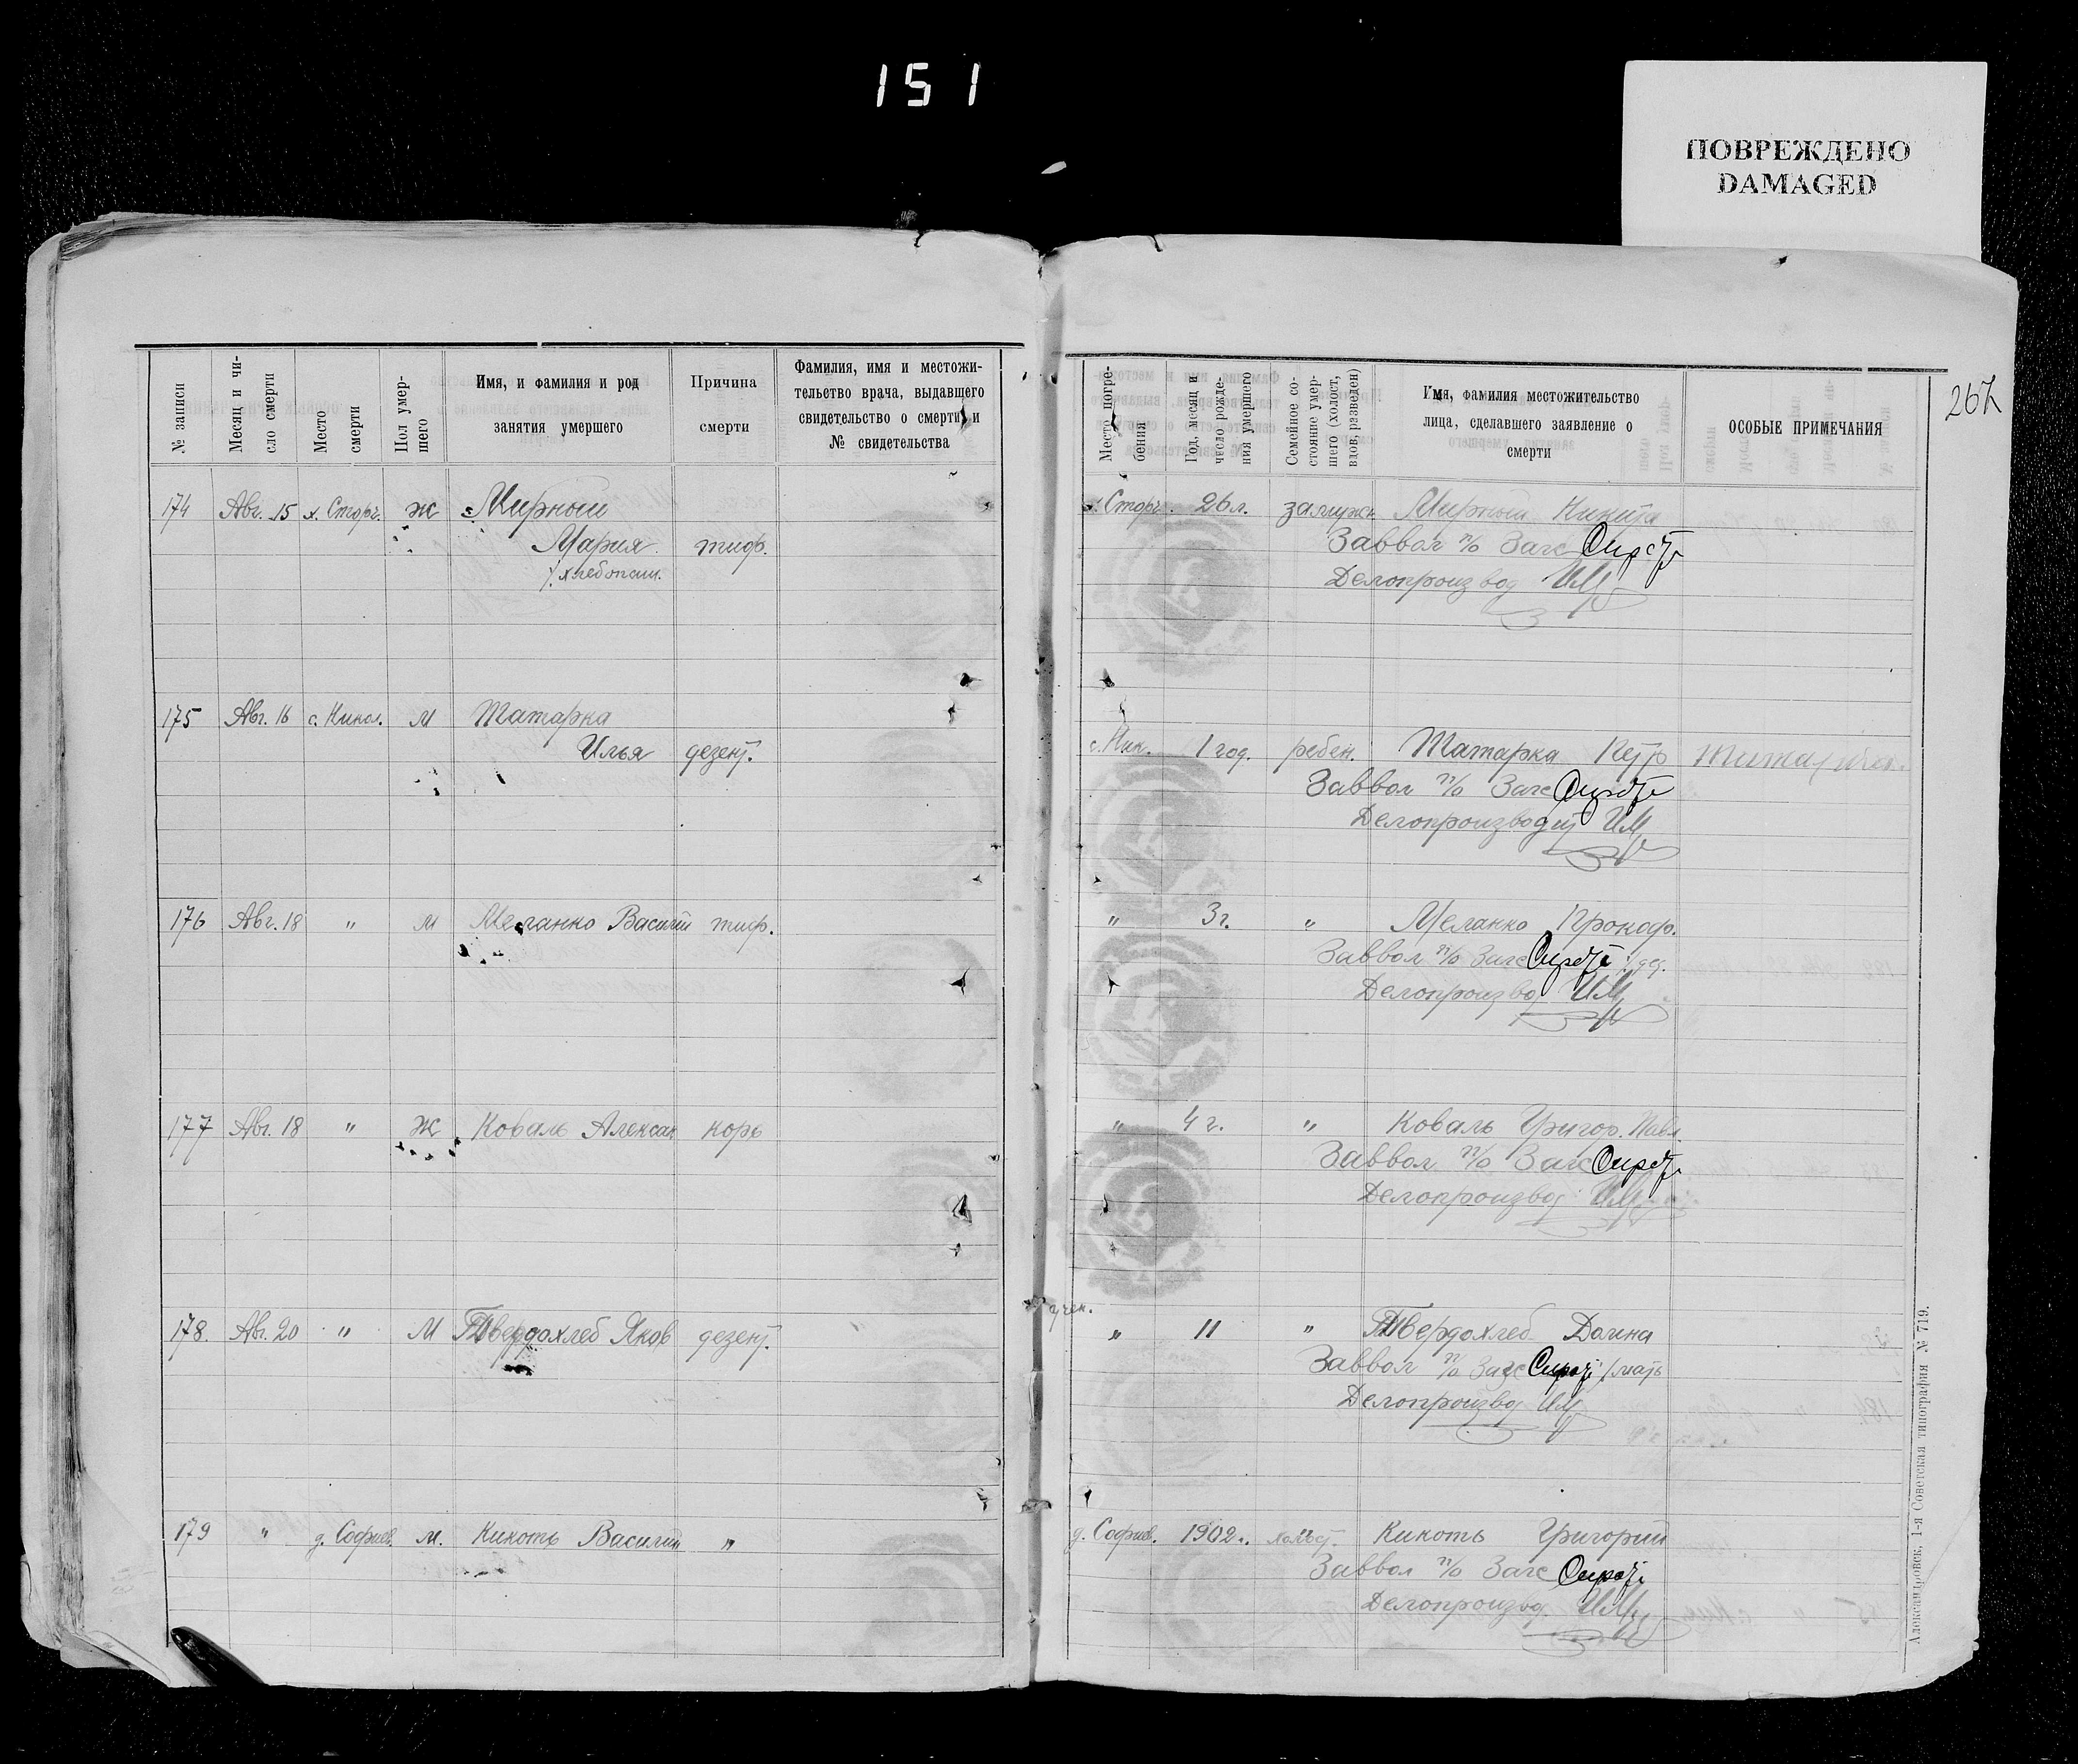 151
ПОВРЕЖДЕНО
DAMAGED
267
№ записи
Месяц и чи-
сло смерти
Место
смерти
Пол умер-
шего
Имя, и фамилия и род
занятия умершего
Причина
смерти
Фамилия, имя и местожи-
тельство врача, выдавшего
свидетельство о смерти и
№ свидетельства
Место погре-
бения
Год, месяц и
число рожде-
ния умершего
Семейное со-
стояние умер-
шего (холост,
вдов, разведен)
Имя, фамилия местожительство
лица, сделавшего заявление о
смерти
ОСОБЫЕ ПРИМЕЧАНИЯ
174 Авг. 15 х. Сторч. ж Мирный
Мария тиф.
хлебопаш.
х. Сторч. 26 л. замужн Мирный Никита
Заввол п/о Загс
Делопроизвод
175 Авг. 16 с. Никол. м Татарка
Илья дезент.
с. Ник. 1 год. ребен. Татарка Петр
Заввол п/о Загс
Делопроизводит
176 Авг. 18 " м Меланко Василий тиф.
" 3 г. " Меланко Прокоф.
Заввол п/о Загс дед.
Делопроизвод
177 Авг. 18 " ж Коваль Алексан корь
" 4 г. " Коваль Григор. Павл.
Заввол п/о Загс
Делопроизвод
178. Авг. 20 " м Твердохлеб Яков дезент.
" 11 " Твердохлеб Домна
Заввол п/о Загс /мать
Делопроизвод
179 " д. Софиев. м. Кикоть Василий "
д. Софиев. 1902 г. холост. Кикоть Григорий
Заввол п/о Загс
Делопроизвод.
Александровск, 1-я Советская типография № 719.